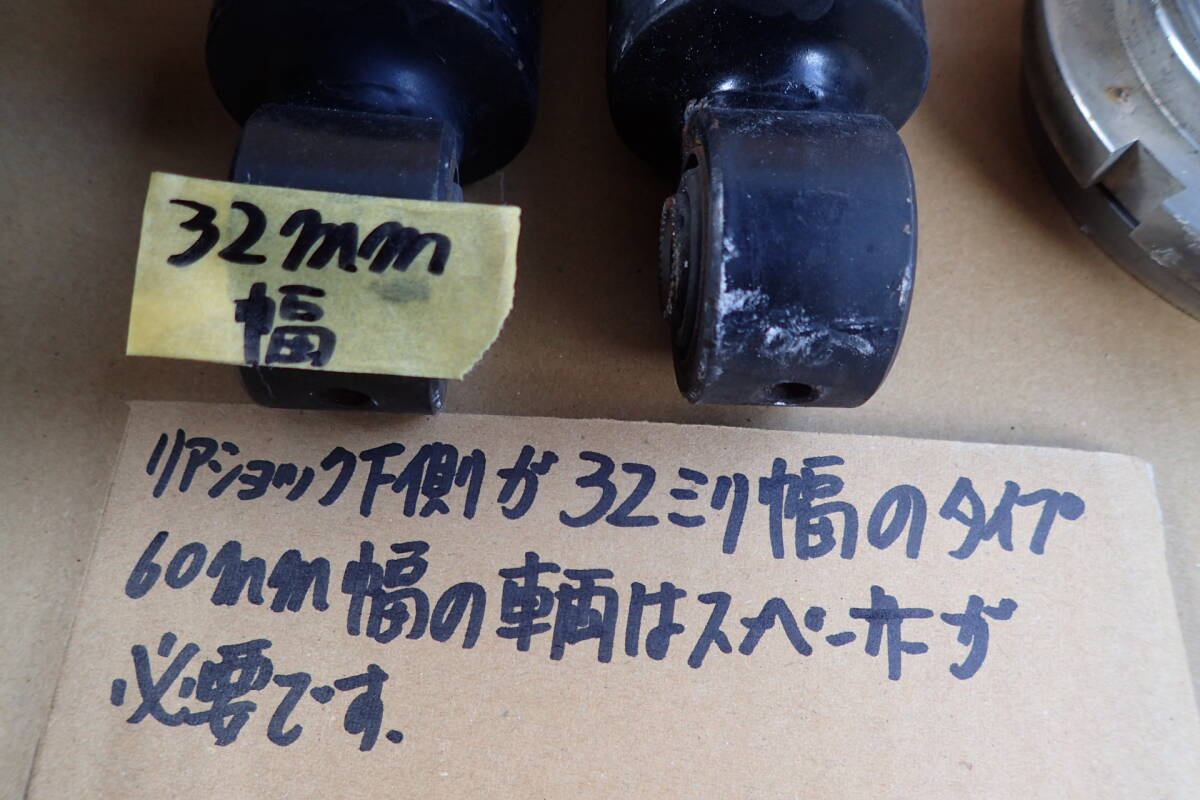 32mm
幅
リアショック下側が32ミリ幅のタイプ
60mm幅の車輌はスペーサーが
必要です.